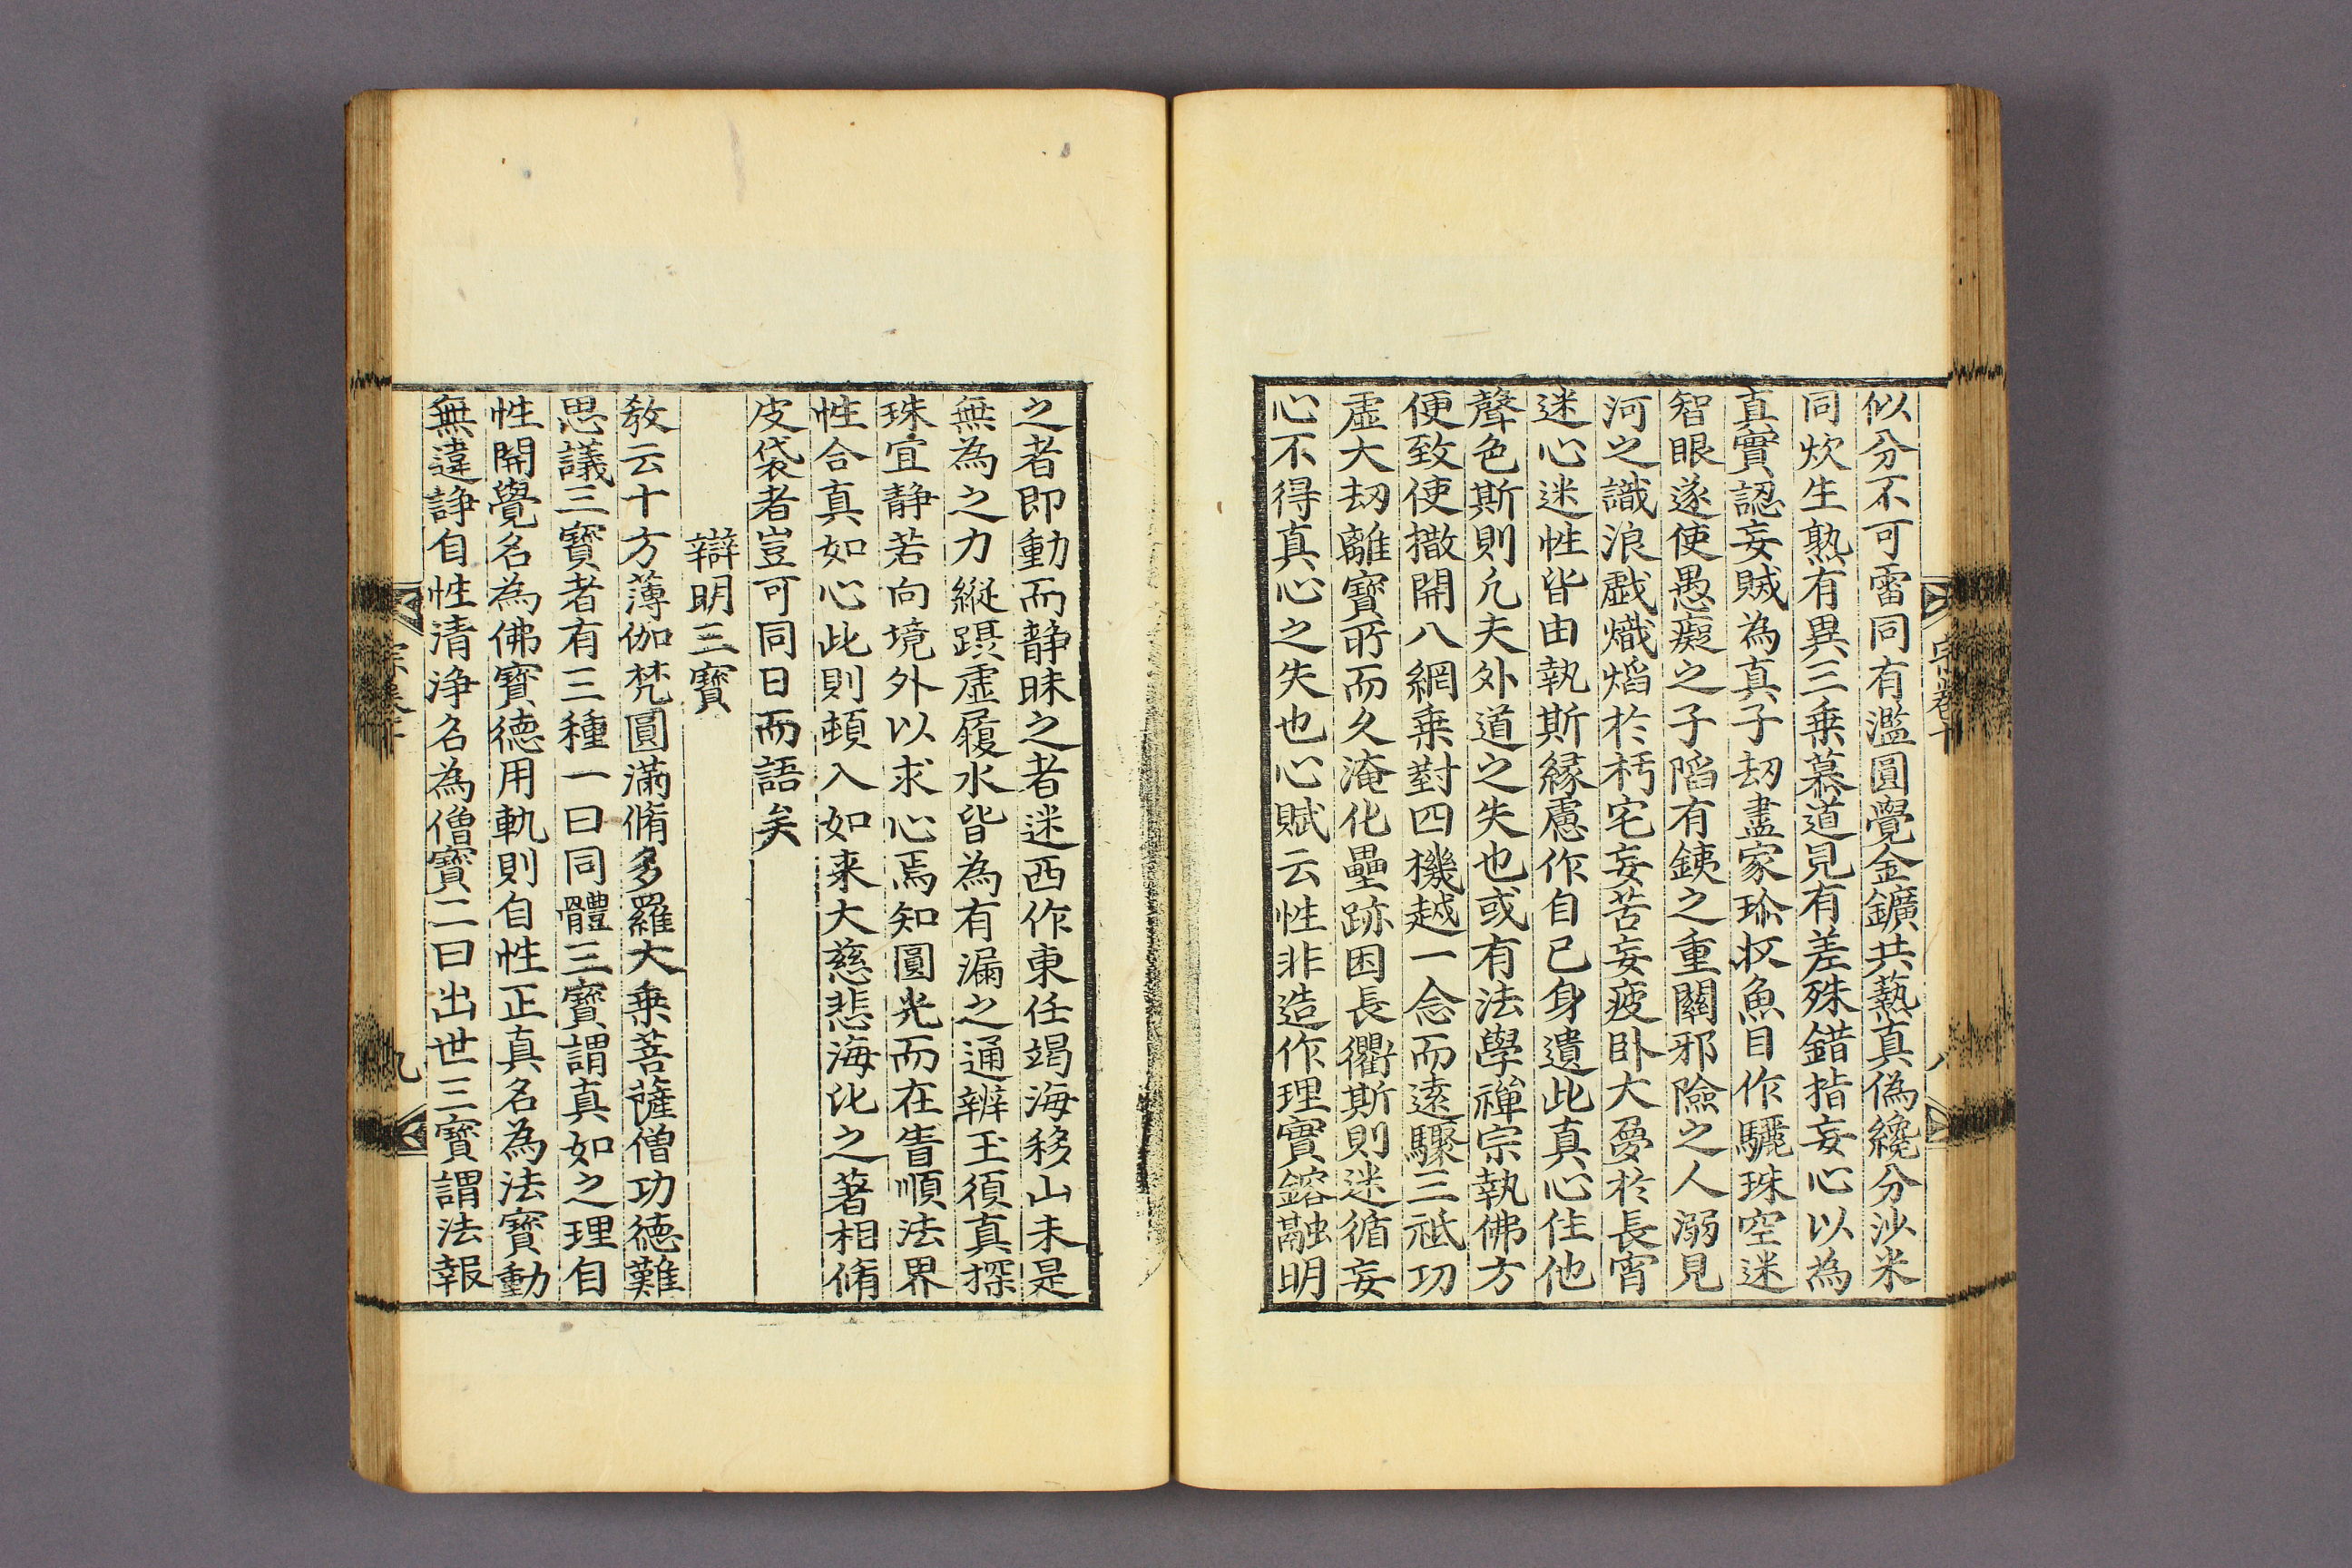 似分不可雷同有濫圓覺金鑛共爇真偽纔分沙米
同炊生熟有異三乗慕道見有差殊錯指妄心以為
真實認妄賊為真子刼盡家珎収魚目作驪珠空迷
智眼遂使愚癡之子陷有銕之重關邪險之人溺見
河之識浪戯熾焰於朽宅妄苦妄疲卧大夣於長宵
迷心迷性皆由執斯緣慮作自己身遺此真心住他
聲色斯則凢夫外道之失也或有法學禪宗執佛方
便致使撒開八網乗對四機越一念而逺驟三祇功
虛大刼離寶所而久淹化壘跡困長衢斯則迷循妄
心不得真心之失也心賦云性非造作理實鎔融明
之者即動而静昧之者迷西作東任竭海移山未是
無為之力縱躡虛履水皆為有漏之通辨玉須真探
珠宜静若向境外以求心焉知圓光而在眚順法界
性合真如心此則頓入如来大慈悲海比之著相脩
皮袋者豈可同日而語矣
辯明三寶
教云十方薄伽梵圓滿脩多羅大乗菩薩僧功德難
思議三寶者有三種一曰同體三寶謂真如之理自
性開覺名為佛寶德用軌則自性正真名為法寶動
無違諍自性清淨名為僧寶二曰出世三寶謂法報
九